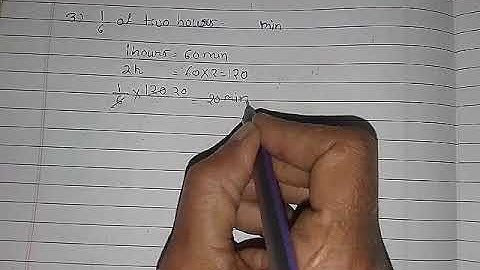 3) 1/6 of two hours min
1hours = 60 min
2h = 60 x 2 = 120
1/6 x 120 20 = 20 min